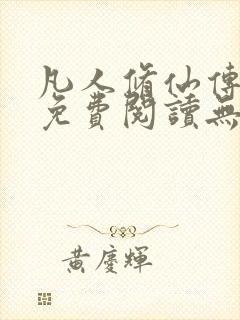 凡人脩仙傳
免費閱讀無
黃慶輝